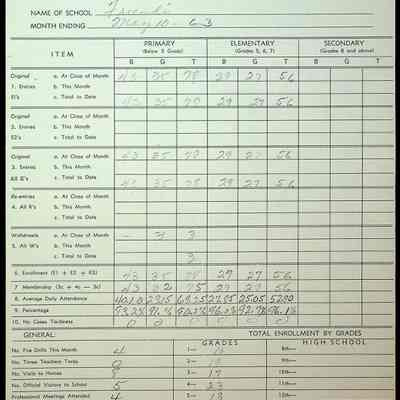 NAME OF SCHOOL Friends
MONTH ENDING May 10 - 63
PRIMARY ELEMENTARY SECONDARY
ITEM (Below 5 Grade) (Grades 5, 6, 7) (Grades 8 and above)
B G T B G T B G T
Original a. At Close of Month 43 35 78 29 27 56
1. Entries b. This Month
E1's c. Total to Date 43 35 78 29 27 56
Original a. At Close of Month
2. Entries b. This Month
E2's c. Total to Date
Original a. At Close of Month 43 35 78 29 27 56
3. Entries b. This Month
All E's c. Total to Date 43 35 78 29 27 56
Re-entries a. At Close of Month
4. All R's b. This Month
c. Total to Date
Withdrawals a. At Close of Month - 3 3
5. All W's b. This Month
c. Total to Date 3
6. Enrollment (E1 + E2 + E3) 43 35 78 29 27 56
7. Membership (3c + 4c — 5c) 43 32 75 29 27 56
8. Average Daily Attendance
9. Percentage
10. No. Cases Tardiness 0 0 0 0 0 0
GENERAL: TOTAL ENROLLMENT BY GRADES
GRADES HIGH SCHOOL
No. Fire Drills This Month 4 1— 8th—
No. Three Teachers Tardy 0 2— 9th—
No. Visits to Homes 3— 17 10th—
No. Official Visitors to School 5 4— 23 11th—
Professional Meetings Attended 4 5— 12th—